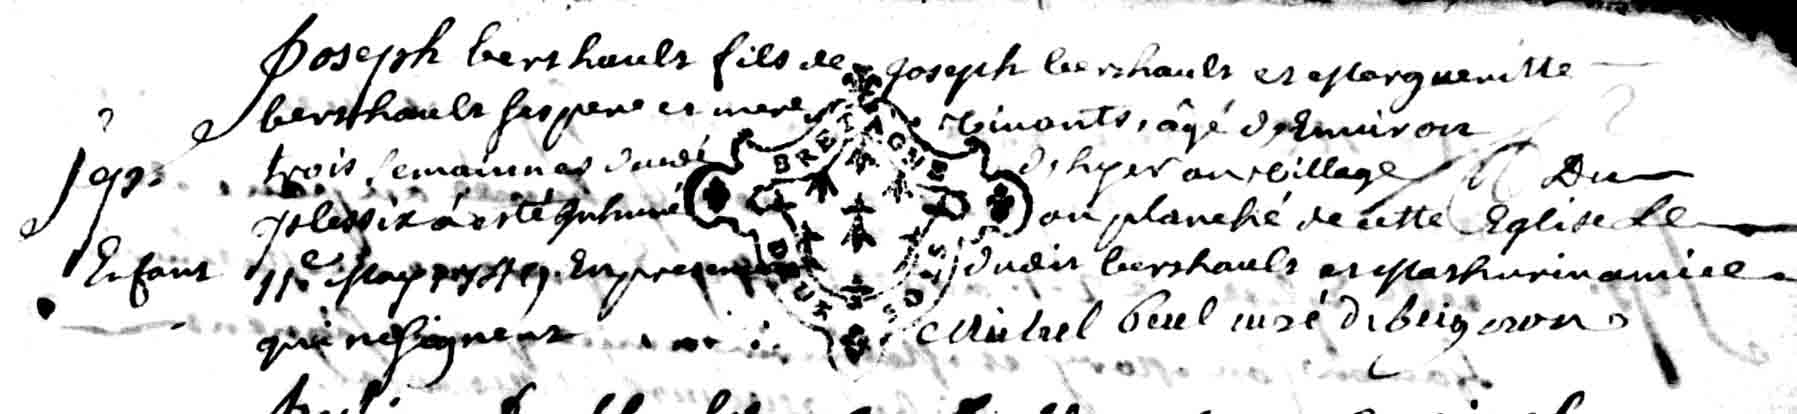 Joseph bershault fils de Joseph bershault et Margueritte
bershault ses pere et mere vivants, âgé d'Environ
trois semainnes d'hyer au village Du
plessix a esté Inhumé au planché de cette Eglise le
11e May En presence dudit bershault et Mathurin amice
qui ne signent Michel curé de beignon
Enfant
BRETAGNE
DEUX SOLS